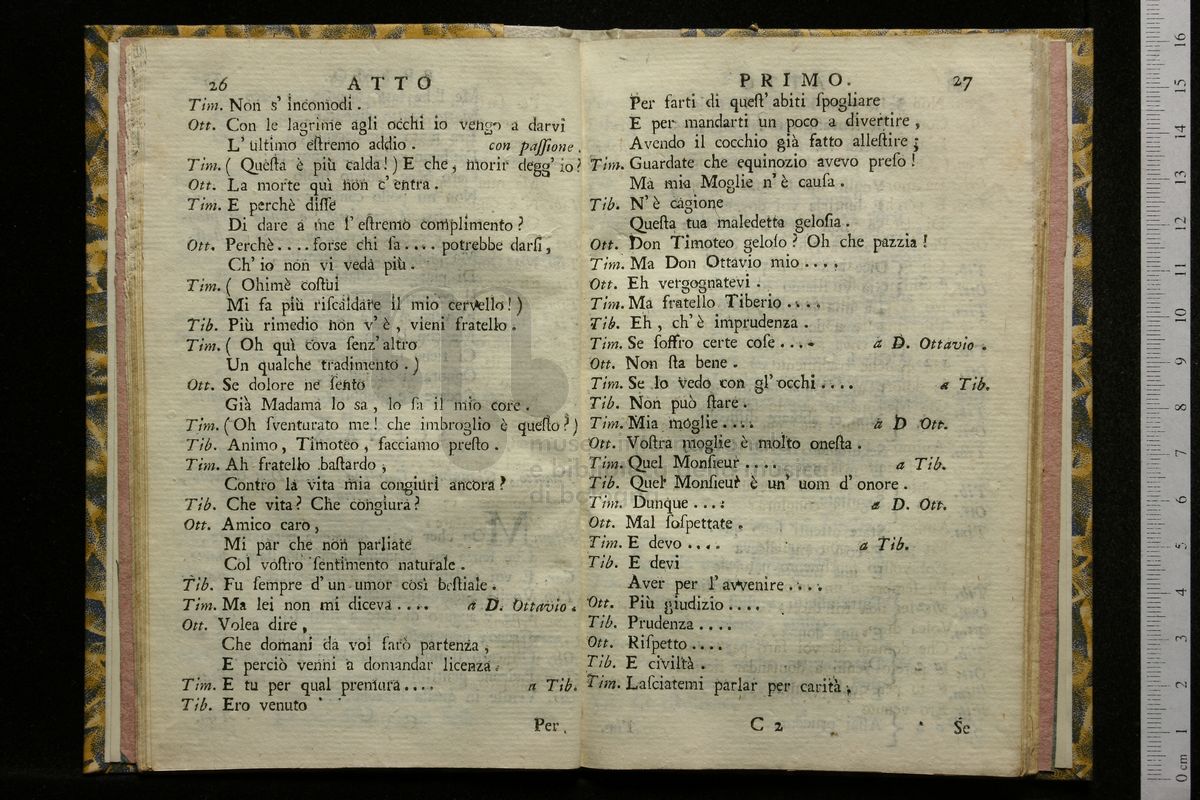 26 ATTO
Tim. Non s' incomodi.
Ott. Con le lagrime agli occhi io vengo a darvi
L' ultimo eſtremo addio. con paſſione.
Tim. ( Queſta è più calda! ) E che, morir degg' io?
Ott. La morte quì non c' entra.
Tim. E perchè diſſe
Di dare a me l' eſtremo complimento?
Ott. Perchè.... forse chi ſa.... potrebbe darſi,
Ch' io non vi veda più.
Tim. ( Ohimè coſtui
Mi fa più riſcaldare il mio cervello! )
Tib. Più rimedio non v' è, vieni fratello.
Tim. ( Oh quì cova ſenz' altro
Un qualche tradimento. )
Ott. Se dolore ne ſento
Già Madama lo sa, lo ſa il mio core.
Tim. ( Oh ſventurato me! che imbroglio è queſto? )
Tib. Animo, Timoteo, facciamo preſto.
Tim. Ah fratello baſtardo,
Contro la vita mia congiuri ancora?
Tib. Che vita? Che congiura?
Ott. Amico caro,
Mi par che non parliate
Col voſtro ſentimento naturale.
Tib. Fu ſempre d' un umor così beſtiale.
Tim. Ma lei non mi diceva.... a D. Ottavio.
Ott. Volea dire,
Che domani da voi farò partenza,
E perciò venni a domandar licenza.
Tim. E tu per qual premura.... a Tib.
Tib. Ero venuto
Per
PRIMO. 27
Per farti di queſt' abiti ſpogliare
E per mandarti un poco a divertire,
Avendo il cocchio già fatto alleſtire;
Tim. Guardate che equinozio avevo preſo!
Ma mia Moglie n' è cauſa.
Tib. N' è cagione
Queſta tua maledetta geloſia.
Ott. Don Timoteo geloſo? Oh che pazzia!
Tim. Ma Don Ottavio mio....
Ott. Eh vergognatevi.
Tim. Ma fratello Tiberio....
Tib. Eh, ch' è imprudenza.
Tim. Se ſoffro certe coſe.... a D. Ottavio.
Ott. Non ſta bene.
Tim. Se lo vedo con gl' occhi.... a Tib.
Tib. Non può ſtare.
Tim. Mia moglie.... a D Ott.
Ott. Voſtra moglie è molto oneſta.
Tim. Quel Monſieur.... a Tib.
Tib. Quel Monſieur è un' uom d' onore.
Tim. Dunque.... a D. Ott.
Ott. Mal ſoſpettate.
Tim. E devo.... a Tib.
Tib. E devi
Aver per l' avvenire....
Ott. Più giudizio....
Tib. Prudenza....
Ott. Riſpetto....
Tib. E civiltà.
Tim. Laſciatemi parlar per carità,
C 2 Se